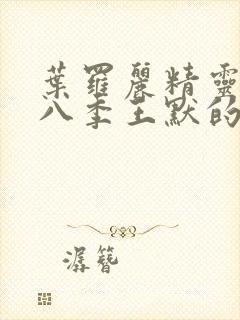 葉羅麗精靈
八季王默的
潺簪